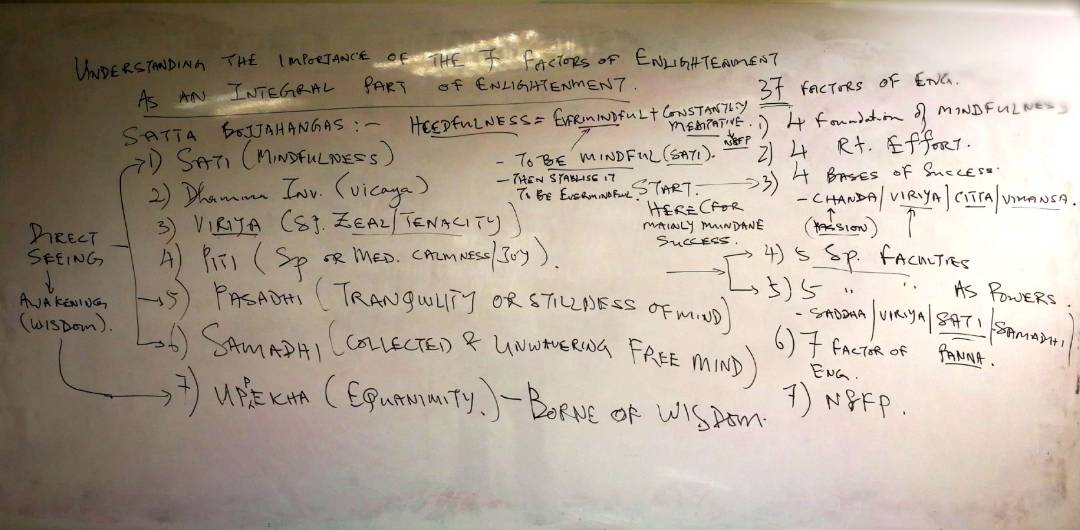 UNDERSTANDING THE IMPORTANCE OF THE 7 FACTORS OF ENLIGHTENMENT
AS AN INTEGRAL PART OF ENLIGHTENMENT.
SATTA BOJJAHANGAS :-
1) SATI (MINDFULNESS)
2) Dhamma Inv. (vicaya)
3) VIRIYA (Sp. ZEAL/TENACITY)
4) PITI (Sp OR MED. CALMNESS/JOY).
5) PASADHI (TRANQUILITY OR STILLNESS OF MIND)
6) SAMADHI (COLLECTED & UNWAVERING FREE MIND)
7) UPPEKHA (EQUANIMITY.) - BORNE OF WISDOM.
DIRECT
SEEING
AWAKENING
(WISDOM).
HEEDFULNESS = EVERMINDFUL + CONSTANTLY
MEDITATIVE.
N8FP
- TO BE MINDFUL (SATI).
- THEN STABLISE IT
TO BE EVERMINDFUL.
START
HERE (FOR
MAINLY MUNDANE
SUCCESS.
37 FACTORS OF ENG.
1) 4 Foundation of MINDFULNESS
2) 4 Rt. EFFORT.
3) 4 BASES OF SUCCESS.
- CHANDA/VIRIYA/CITTA/VIMANSA.
(PASSION)
4) 5 Sp. FACULTIES
5) 5 " " AS POWERS.
- SADDHA/VIRIYA/SATI/SAMADHI/
PANNA.
6) 7 FACTOR OF
ENG.
7) N8FP.